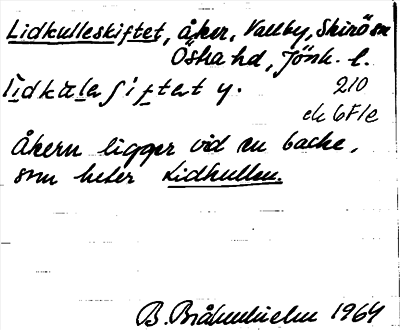 Lidkulleskiftet, åker, Vallby, Skirö sn
Östra hd, Jönk. l.
210
ek 6F1e
Åkern ligger vid en backe,
som heter Lidkullen.
1964